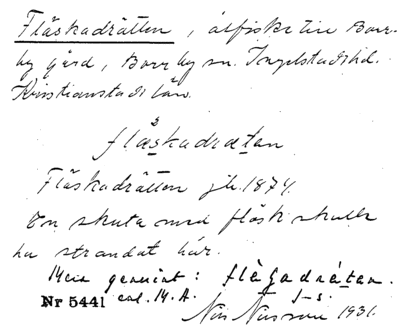 Fläskadrätten, ålfiske till Borr-
by gård, Borrby sn. Ingelstads hd.
Kristianstads län.
flæskadrætan
Fläskadrätten jb. 1874.
En skuta med fläsk skulle
ha strandat här.
Mera genuint: flågadrætan.
Nr 5441 enl. M. A.
Nils Nilsson 1931.